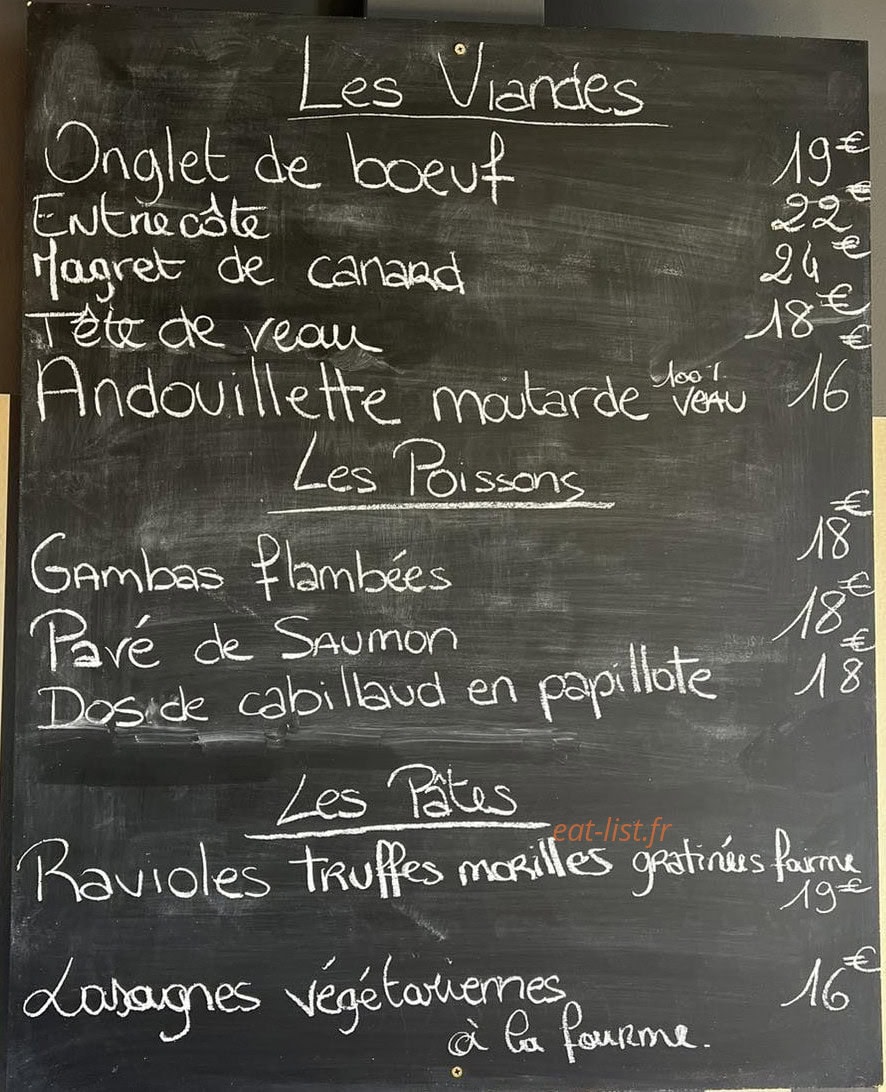 Les Viandes
Onglet de boeuf 19€
Entrecôte 22€
Magret de canard 24€
Tête de veau 18€
Andouillette moutarde 100% VEAU 16€
Les Poissons
Gambas flambées 18€
Pavé de SAUMON 18€
Dos de cabillaud en papillote 18€
Les Pâtes
eat-list.fr
Ravioles truffes morilles gratinées fourme
19€
Lasagnes végétariennes 16€
à la fourme.